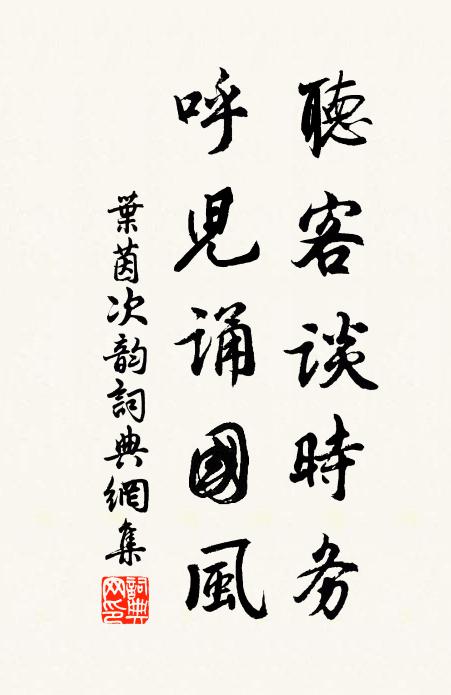 聽客談時务
呼児誦國風
葉茵次韵詞典網集
詞典網印